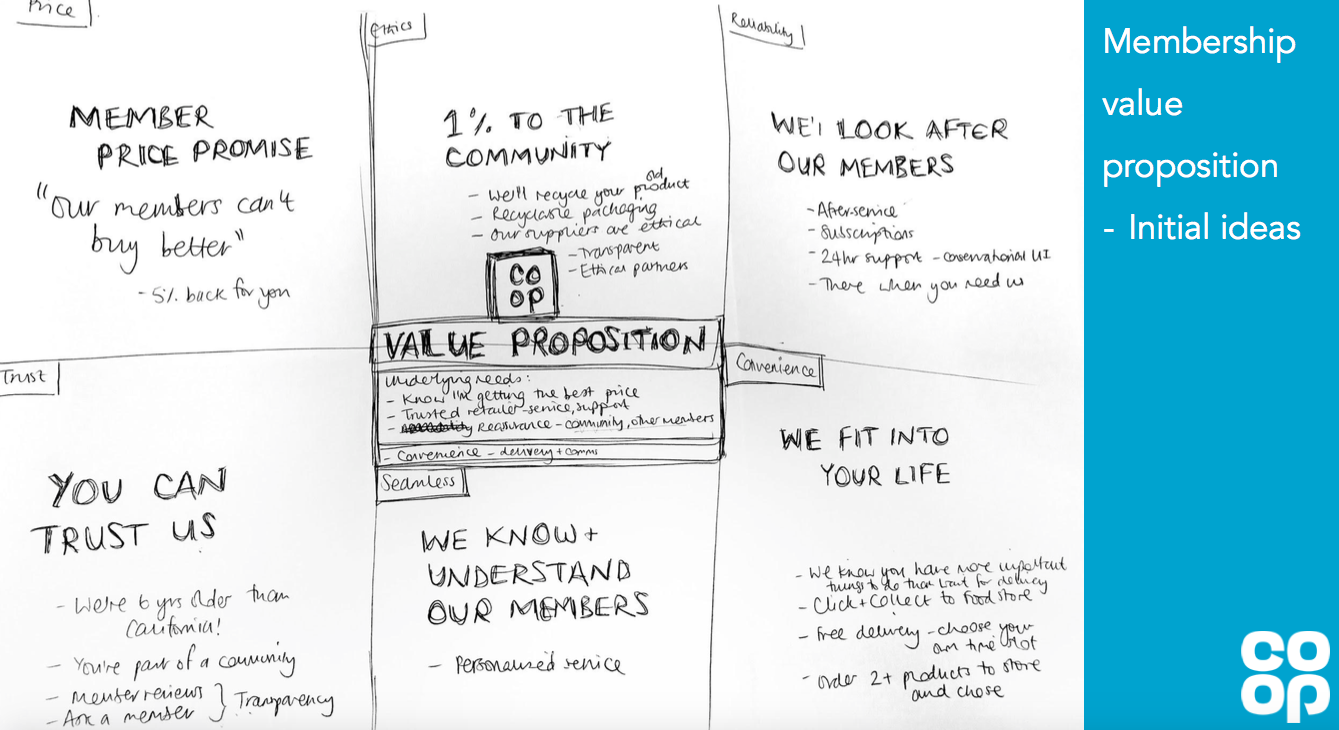 Price
MEMBER
PRICE PROMISE
"Our members can't
buy better"
- 5% back for you
Ethics
1% TO THE
COMMUNITY
- We'll recycle your old product
- Recyclable packaging
- Our suppliers are ethical
- Transparent
- Ethical partners
CO
OP
Reliability
WE'L LOOK AFTER
OUR MEMBERS
- After-service
- Subscriptions
- 24hr support - conservational UI
- There when you need us
VALUE PROPOSITION
Underlying needs:
- Know I'm getting the best price
- Trusted retailer - service, support
- Reassurance - community, other members
- Convenience - delivery + comms
Trust
YOU CAN
TRUST US
- We're 6 yrs older than
California!
- You're part of a community
- Member reviews
- Ask a member } Transparency
Seamless
WE KNOW +
UNDERSTAND
OUR MEMBERS
- Personalised service
Convenience
WE FIT INTO
YOUR LIFE
- We know you have more important
things to do than wait for delivery
- Click + Collect to food store
- Free delivery - choose your
own time slot
- Order 2+ products to store
and chose
Membership
value
proposition
- Initial ideas
CO
OP